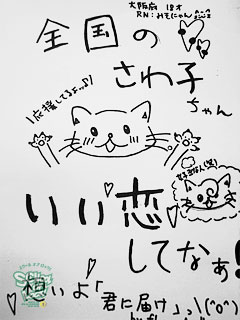 大阪府 18才
RN:みそにゃん
全国の
さわ子
ちゃん
\応援してるよっ♪/
いい恋
してなぁ!
想いよ「君に届け」っ\(^o^)/